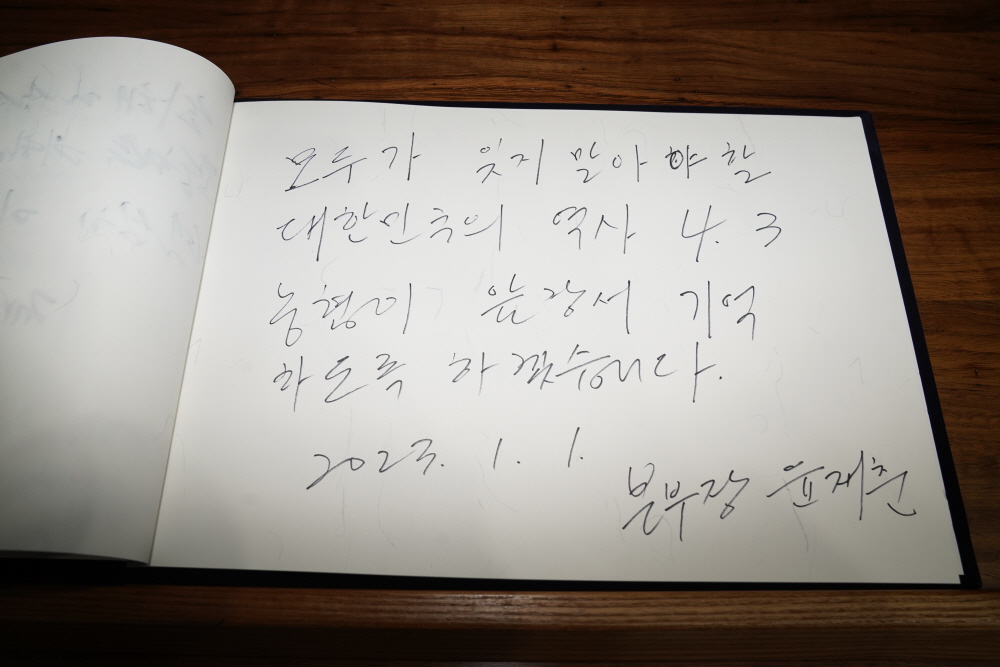 모두가 잊지 말아야 할
대한민국의 역사 4. 3
농협이 앞장서 기억
하도록 하겠습니다.
2023. 1. 1.
본부장 윤재춘